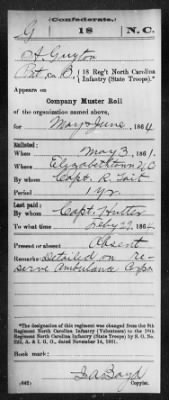 (Confederate.)
G 18 N.C.
A Guyton
Pvt. Co. B, 18 Reg't North Carolina
Infantry (State Troops).*
Appears on
Company Muster Roll
of the organization named above,
for May & June, 1864
Enlisted:
When May 3, 186
Where Elizabethtown N C
By whom Capt. R. Tait
Period 1 yr.
Last paid:
By whom Capt. Hutter
To what time Feby 29, 186
Present or absent Absent
Remarks: Detailed on re-
serve Ambulance Corps
*The designation of this regiment was changed from the 8th
Regiment North Carolina Infantry (Volunteers) to the 18th
Regiment North Carolina Infantry (State Troops) by S. O. No.
222, A. & I. G. O., dated November 14, 1861.
Book mark:
(642) Copyist.